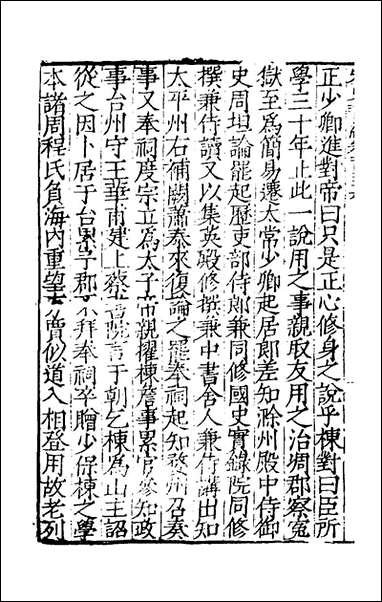 正少卿進對帝曰只是正心修身之說乎棟對曰臣所
學三十年止此一說用之事親取友用之治凋郡察冤
獄至爲簡易遷太常少卿起居郎差知滁州殿中侍御
史周坦論罷起歷吏部侍郎兼同修國史實錄院同修
撰兼侍讀又以集英殿修撰兼中書舍人兼侍講出知
太平州右補闕蕭泰來復論之罷奉祠起知婺州召奏
事又奉祠度宗立爲太子帝親擢棟詹事累官參知政
事台州守王華甫建上蔡書院言于朝乞棟爲山主詔
從之因卜居于台累予郡不拜奉祠卒贈少保棟之學
本諸周程氏負海内重望方賈似道入相登用故老列